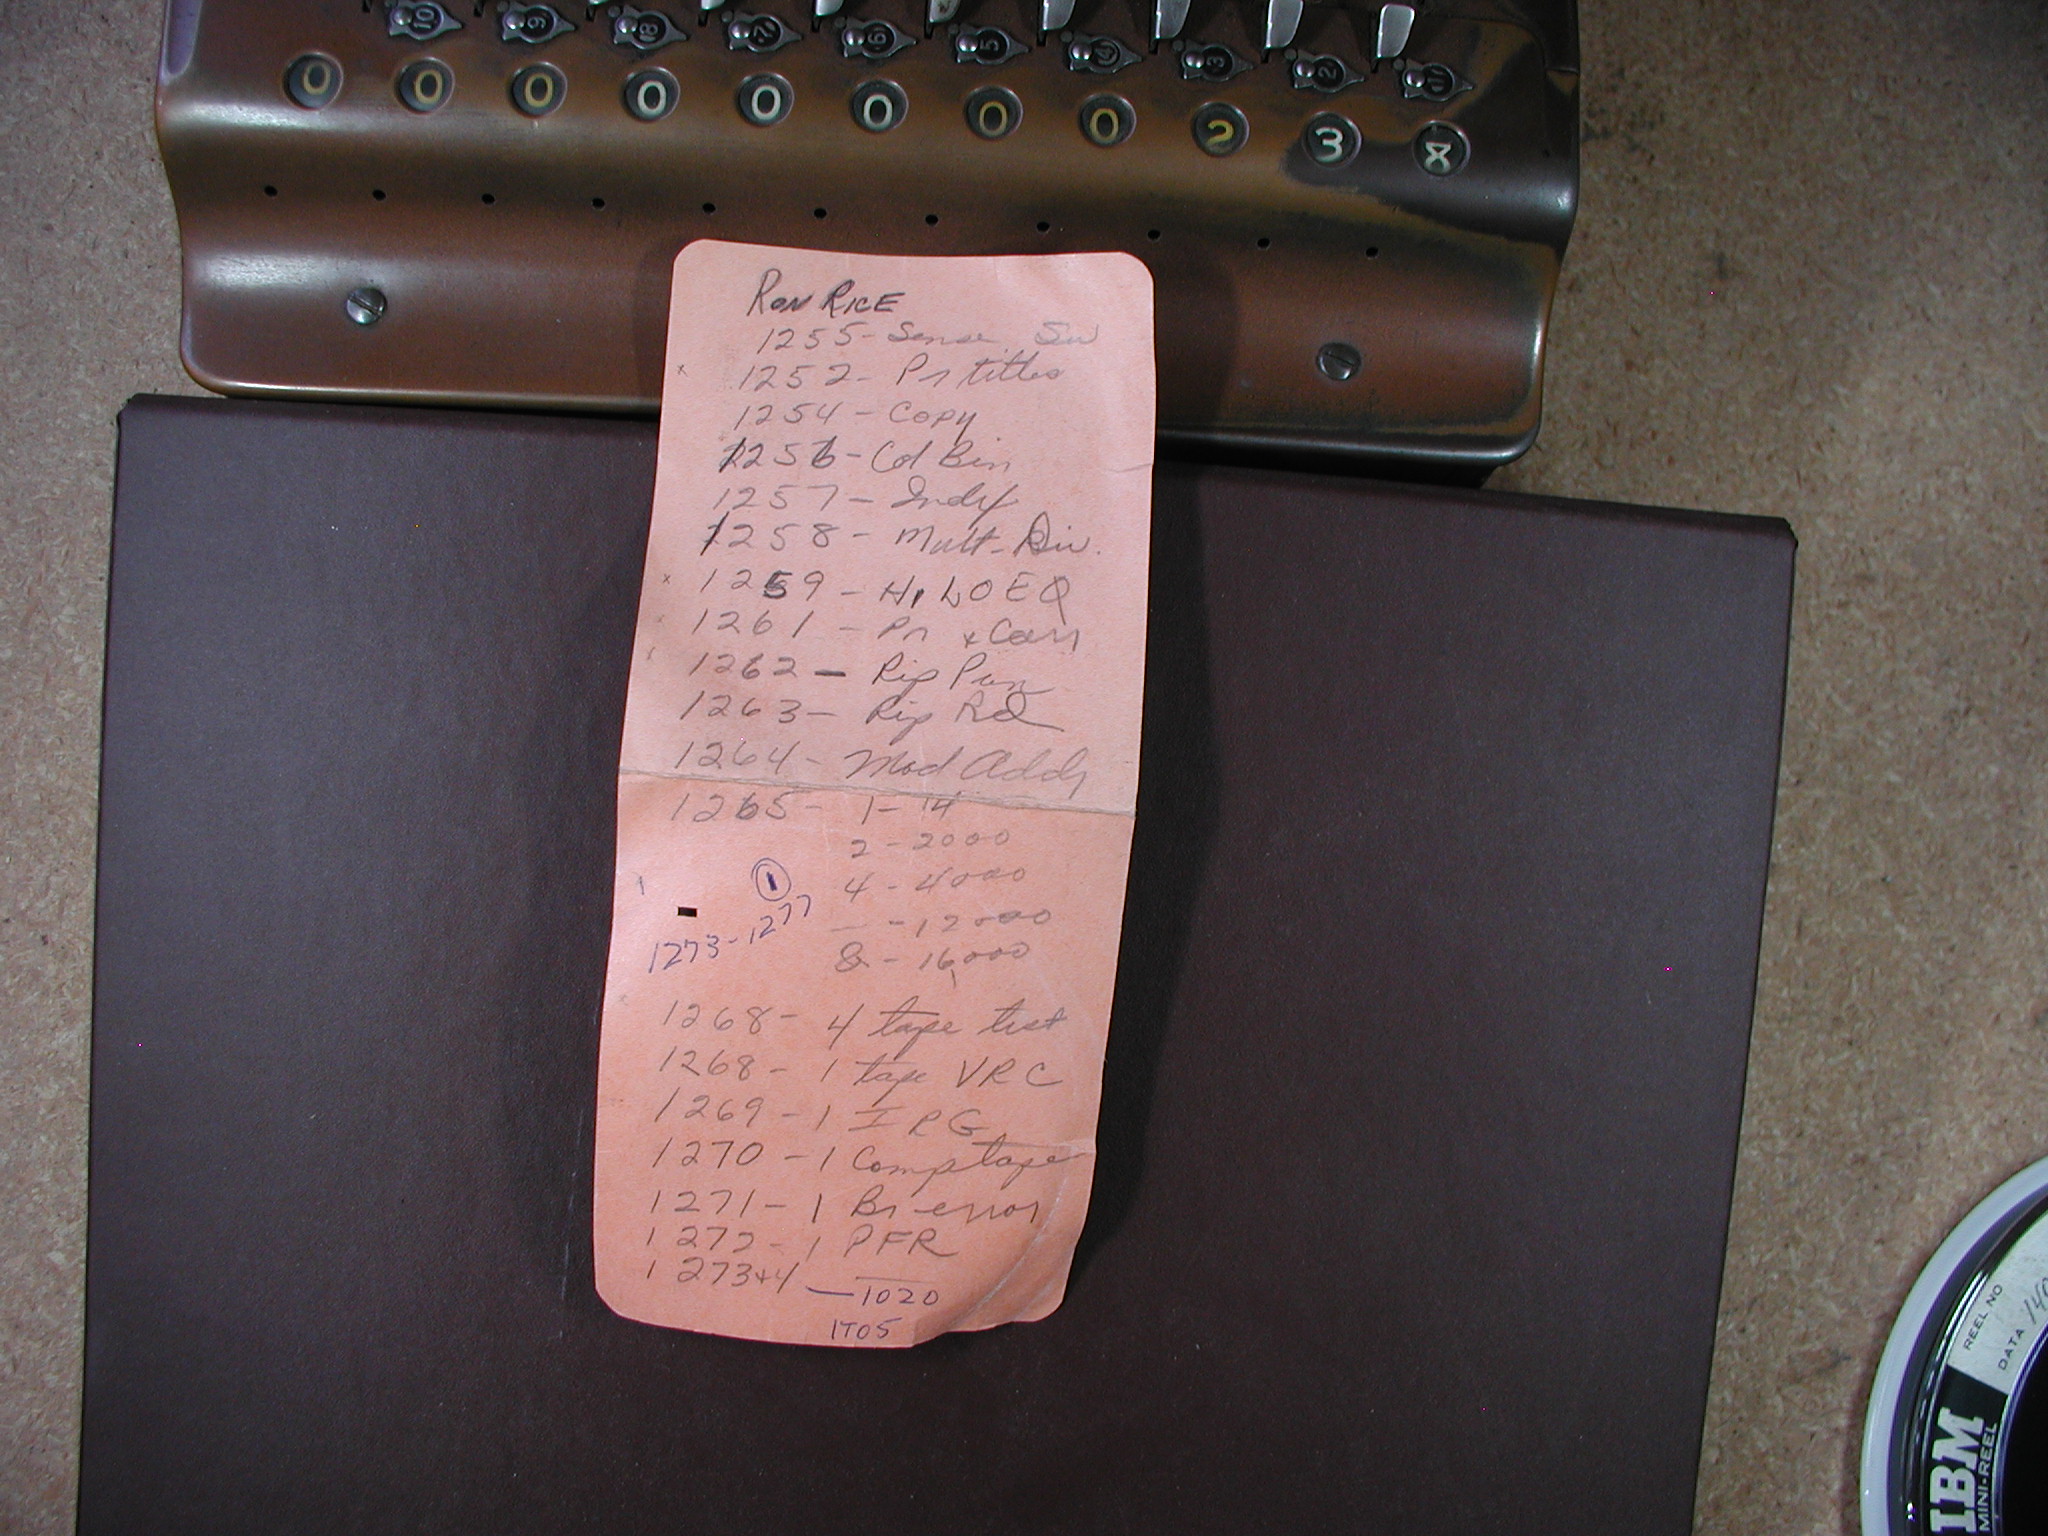 10 9 8 7 6 5 4 3 2 1
0 0 0 0 0 0 0 0 2 3
RON RICE
1255 - Sense Sw
x 1252 - Pr titles
1254 - Copy
1256 - Col Bin
1257 - Index
1258 - Mult - Div.
x 1259 - Hi LO EQ
1261 - Pr + Carr
1262 - Rig Pun
1263 - Rig Rd
1264 - Mod Addr
1265 - 1 - 14
2 - 2000
4 - 4000
- 12000
8 - 16000
1
1273 - 1277
1268 - 4 tape test
1268 - 1 tape VRC
1269 - 1 I R G
1270 - 1 Comp tape
1271 - 1 Br error
1272 - 1 PFR
1273+4 — 1020
1T05
REEL NO
DATA 140
IBM
MINI-REEL